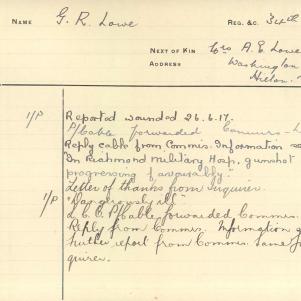 NAME G. R. Lowe REG. &C. 34th
NEXT OF KIN Mrs A. E. Lowe
ADDRESS Washington
1/P Reported wounded 26.6.17.
forwarded
Reply cable from Commis. Information
In Richmond Military Hosp. gunshot
progressing favourably."
Letter of thanks from Inquirer.
1/P "Dangerously ill"
forwarded Commis.
Reply from Commis. Information
further report from Commis. Same
quirer.